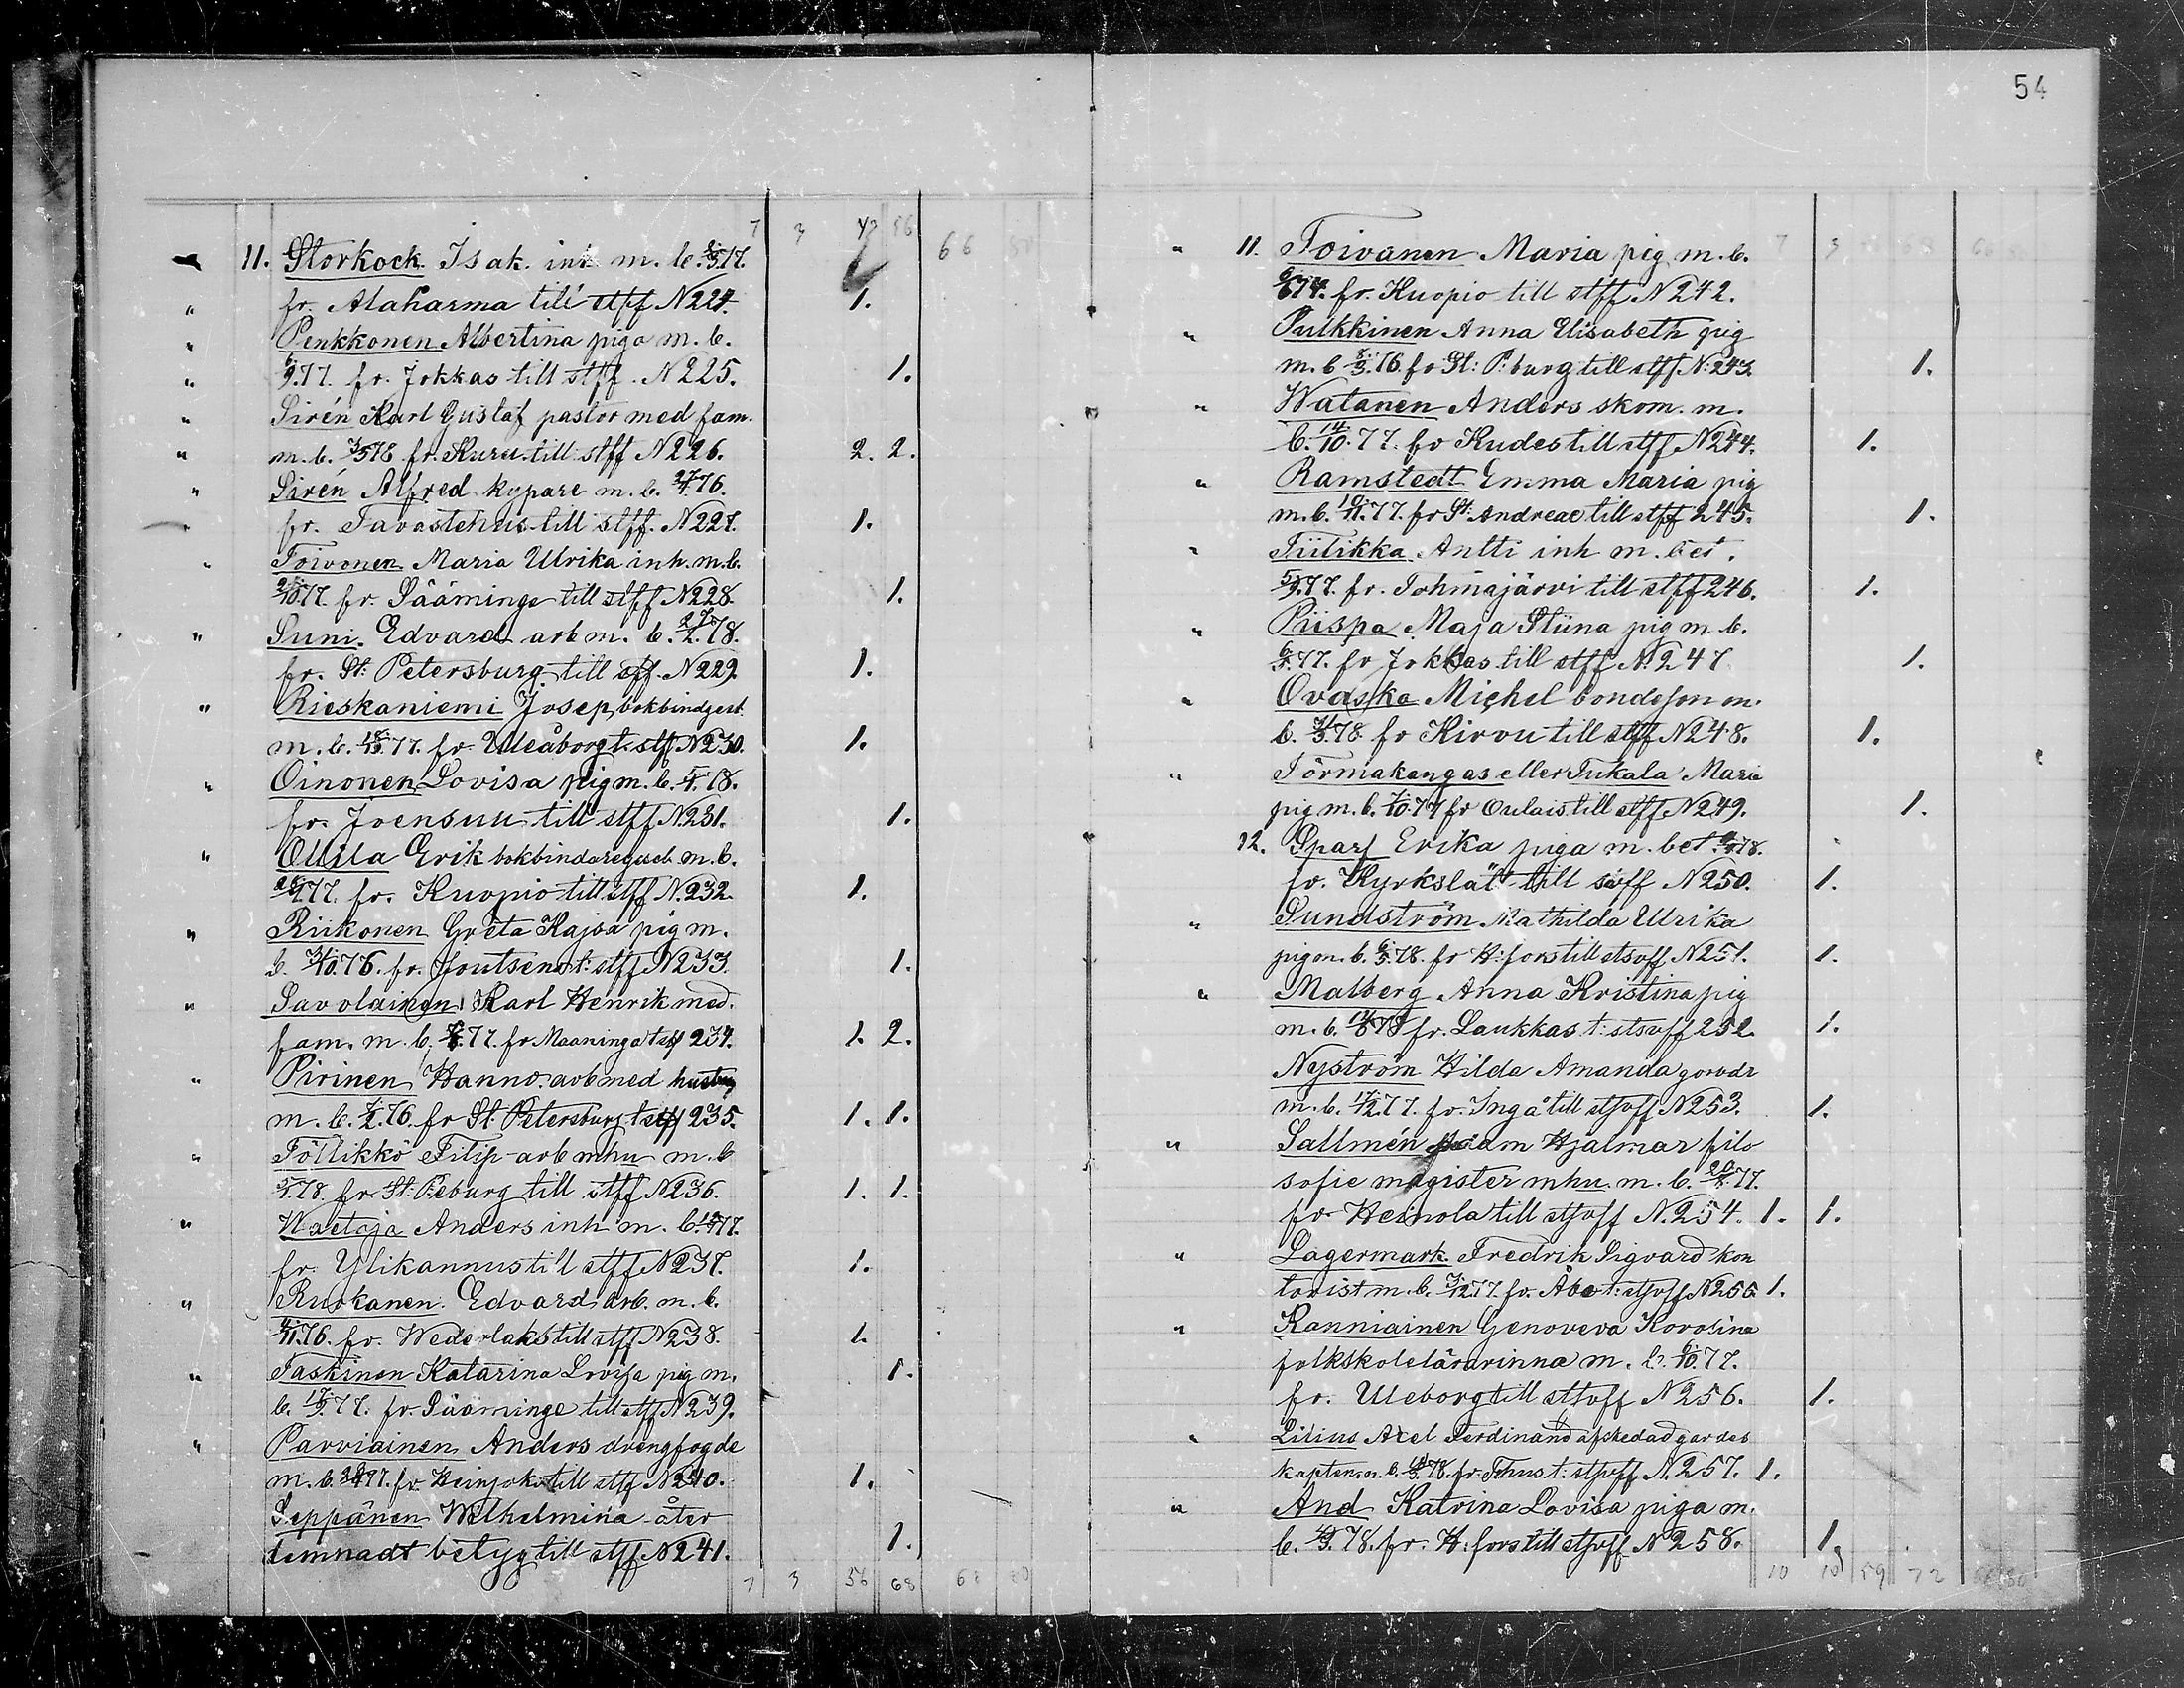 54
7 3 43 56 66 80
11. Storkock Isak. inh m. b. 8/3.17.
" fr. Alaharma till stff N 224. 1.
" Penkkonen Albertina piga m. b.
" 6/9.77. fr. Jokkas till stff. N 225. 1.
" Sirén Karl Gustaf pastor med fam.
" m. b. 3/5 78 fr. Kuru till stff N 226. 2. 2.
" Sirén Alfred kypare m. b. 76.
" fr. Tavastehus till stff. N 227. 1.
" Toivonen Maria Ulrika inh. m. b.
77. fr. Sääminge till stff N 228. 1.
" Suni. Edvard arb m. b. 78.
fr. St: Petersburg till stff. N 229. 1.
" Rieskaniemi Josep, bokbindgest.
m. b. 77. fr. Uleåborg t. stff N 230. 1.
" Oinonen Lovisa pig m. b. 78.
fr. Joensuu till stff N. 231. 1.
" Ollila Erik bokbindaregesel. m. b.
77. fr. Kuopio till stff N. 232. 1.
" Riikonen Greta Kajsa pig m.
b. 76. fr. Joutseno t: stff N 233. 1.
" Savolainen Karl Henrik med.
fam. m. b. 77. fr Maaninga t stff 234. 1. 2.
" Pirinen Hanno. arb med hustru
m. b. 7/2.76. fr St: Petersburg t stff 235. 1. 1.
" Töllikkö Filip arb mhu m. b
78. fr St: P:eburg till stff N 236. 1. 1.
" Waetoja Anders inh m. b. 77.
fr. Ylikannus till stff N 237. 1.
" Ruokanen. Edvard arb. m. b.
76. fr. Wederlaks till stff N 238. 1.
" Taskinen Katarina Lovisa pig m. 1.
b. 77. fr. Sääminge till stff N 239.
" Parviainen Anders drengfogde
m. b. fr. Heinjoki till stff N 240. 1.
Seppänen Wilhelmina åter
lemnadt betyg till stff N 241. 1.
7 3 56 68 68 80
" 11. Toivanen Maria pig m. b.
fr. Kuopio till stff N 242.
" Pulkkinen Anna Elisabeth pig
m. b 8/3.76. fr St: P:burg till stff N: 243. 1.
" Watanen Anders skom. m.
b. 14/10.77. fr Kudes till stff N 244. 1.
" Ramstedt Emma Maria pig
m. b. 10/11.77. fr St: Andreae till stff 245. 1.
" Tiilikka Antti inh m. bet.
5/9.77. fr. Tohmajärvi till stff 246. 1.
" Piispa Maja Stiina pig m. b.
77. fr Jokkas till stff N. 247 1.
" Ovaska Michel bondeson m.
b. 78. fr Kirvu till stff N 248. 1.
" Törmakangas eller Tukala Maria
pig m. b. 77 fr Oulais till stff N 249. 1.
12. Sparf Erika piga m. bet 78.
fr. Kyrkslätt till stsoff N 250. 1.
" Sundström Mathilda Ulrika
pig m. b. 78. fr H:fors till stsoff N 251. 1.
" Malberg Anna Kristina pig
m. b. 78 fr. Laukkas t: stsoff 252. 1.
Nyström Hilda Amanda
m. b. 77. fr. Ingå till stsoff N 253. 1.
" Sallmén Adam Hjalmar filo
sofie magister mhu. m. b. 77.
fr Heinola till stsoff N. 254. 1. 1.
" Lagermark Fredrik Sigvard kon
torist m. b. 3/12.77. fr. Åbo t: stsoff N 255 1.
" Ranniainen Genoveva Karolina
folkskolelärarinna m. b. 77.
fr. Uleborg till stsoff N 256. 1.
" Lilius Axel Ferdinand afskedad gardes
kapten m. b. 78. fr. T:hus t: stsoff N. 257. 1.
" And Katrina Lovisa piga m.
b. 78. fr. H:fors till stsoff N 258. 1.
10 10 59 72 66 80